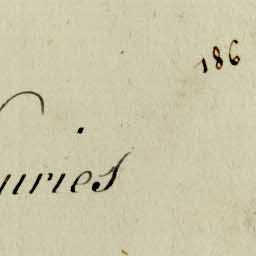 186
uries